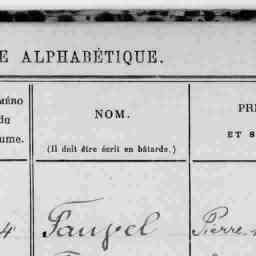 E ALPHABÉTIQUE.
MÉRO
du
ume.
NOM.
(Il doit être écrit en bâtarde.)
PR
ET S
4
Faupel
Pierre